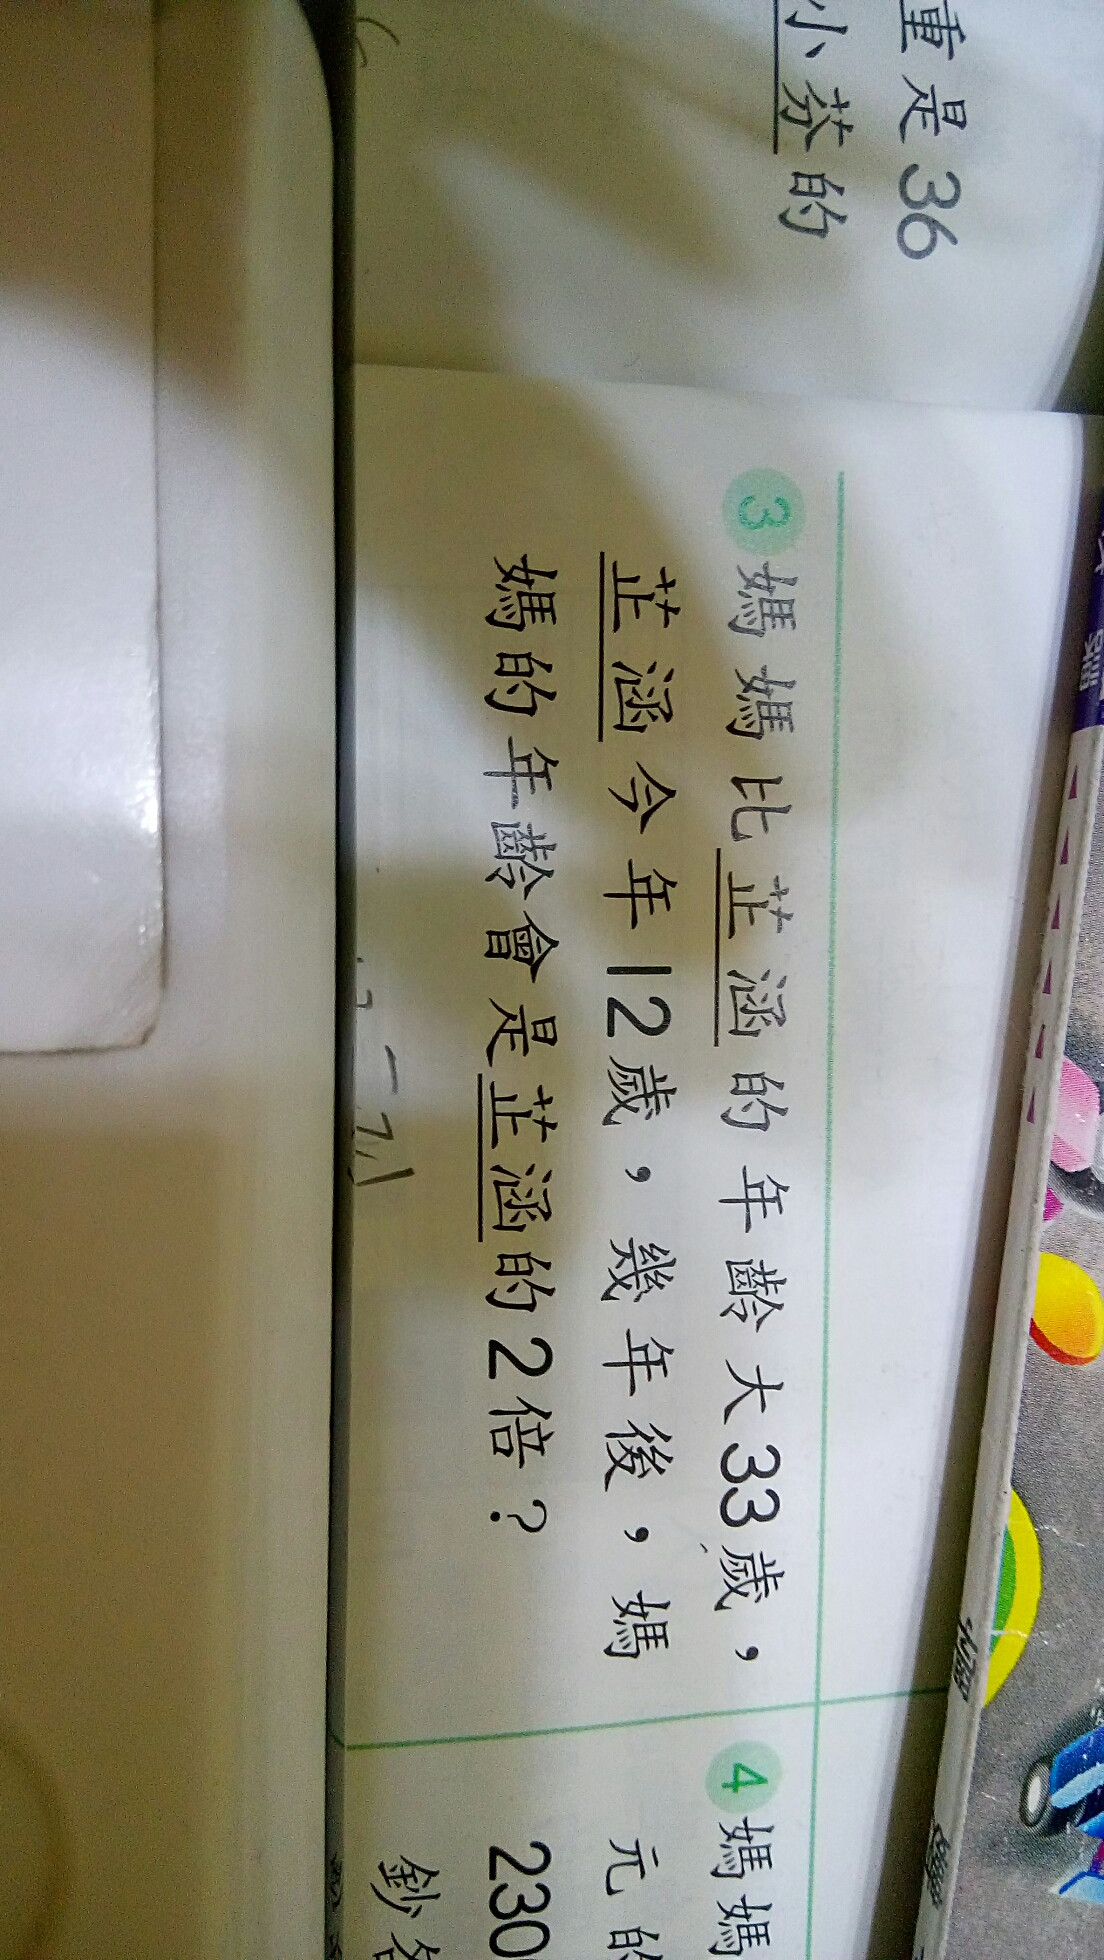 重是36
小芬的
3 媽媽比芷涵的年齡大33歲，
芷涵今年12歲，幾年後，媽
媽的年齡會是芷涵的2倍？
4 媽媽
元的
230
鈔